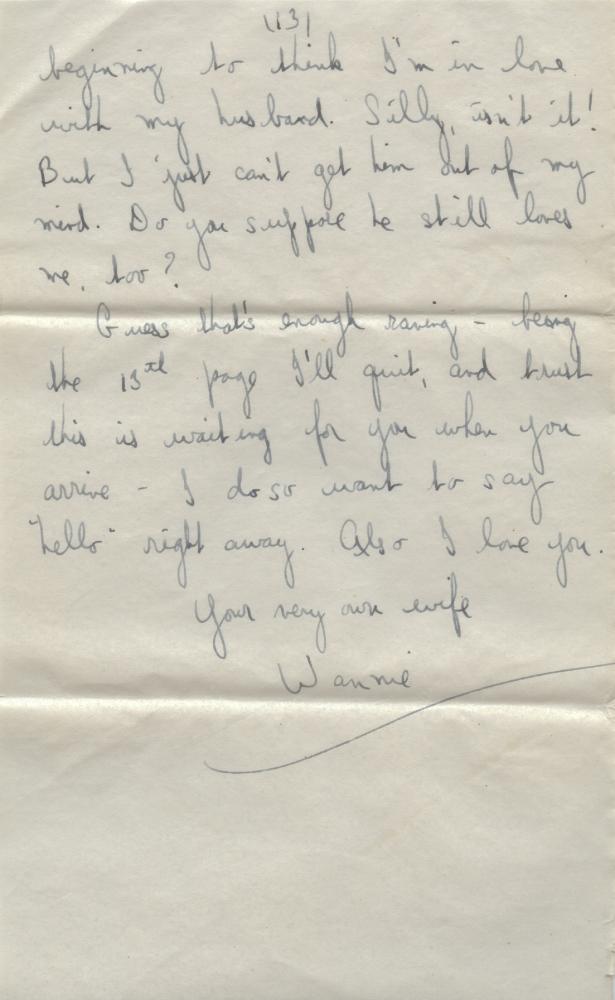 (13)
beginning to think I'm in love
with my husband. Silly, isn't it!
But I just can't get him out of my
mind. Do you suppose he still loves
me, too?
Guess that's enough raving - being
the 13th page I'll quit, and trust
this is waiting for you when you
arrive - I do so want to say
"hello" right away. Also I love you.
Your very own wife
Wannie